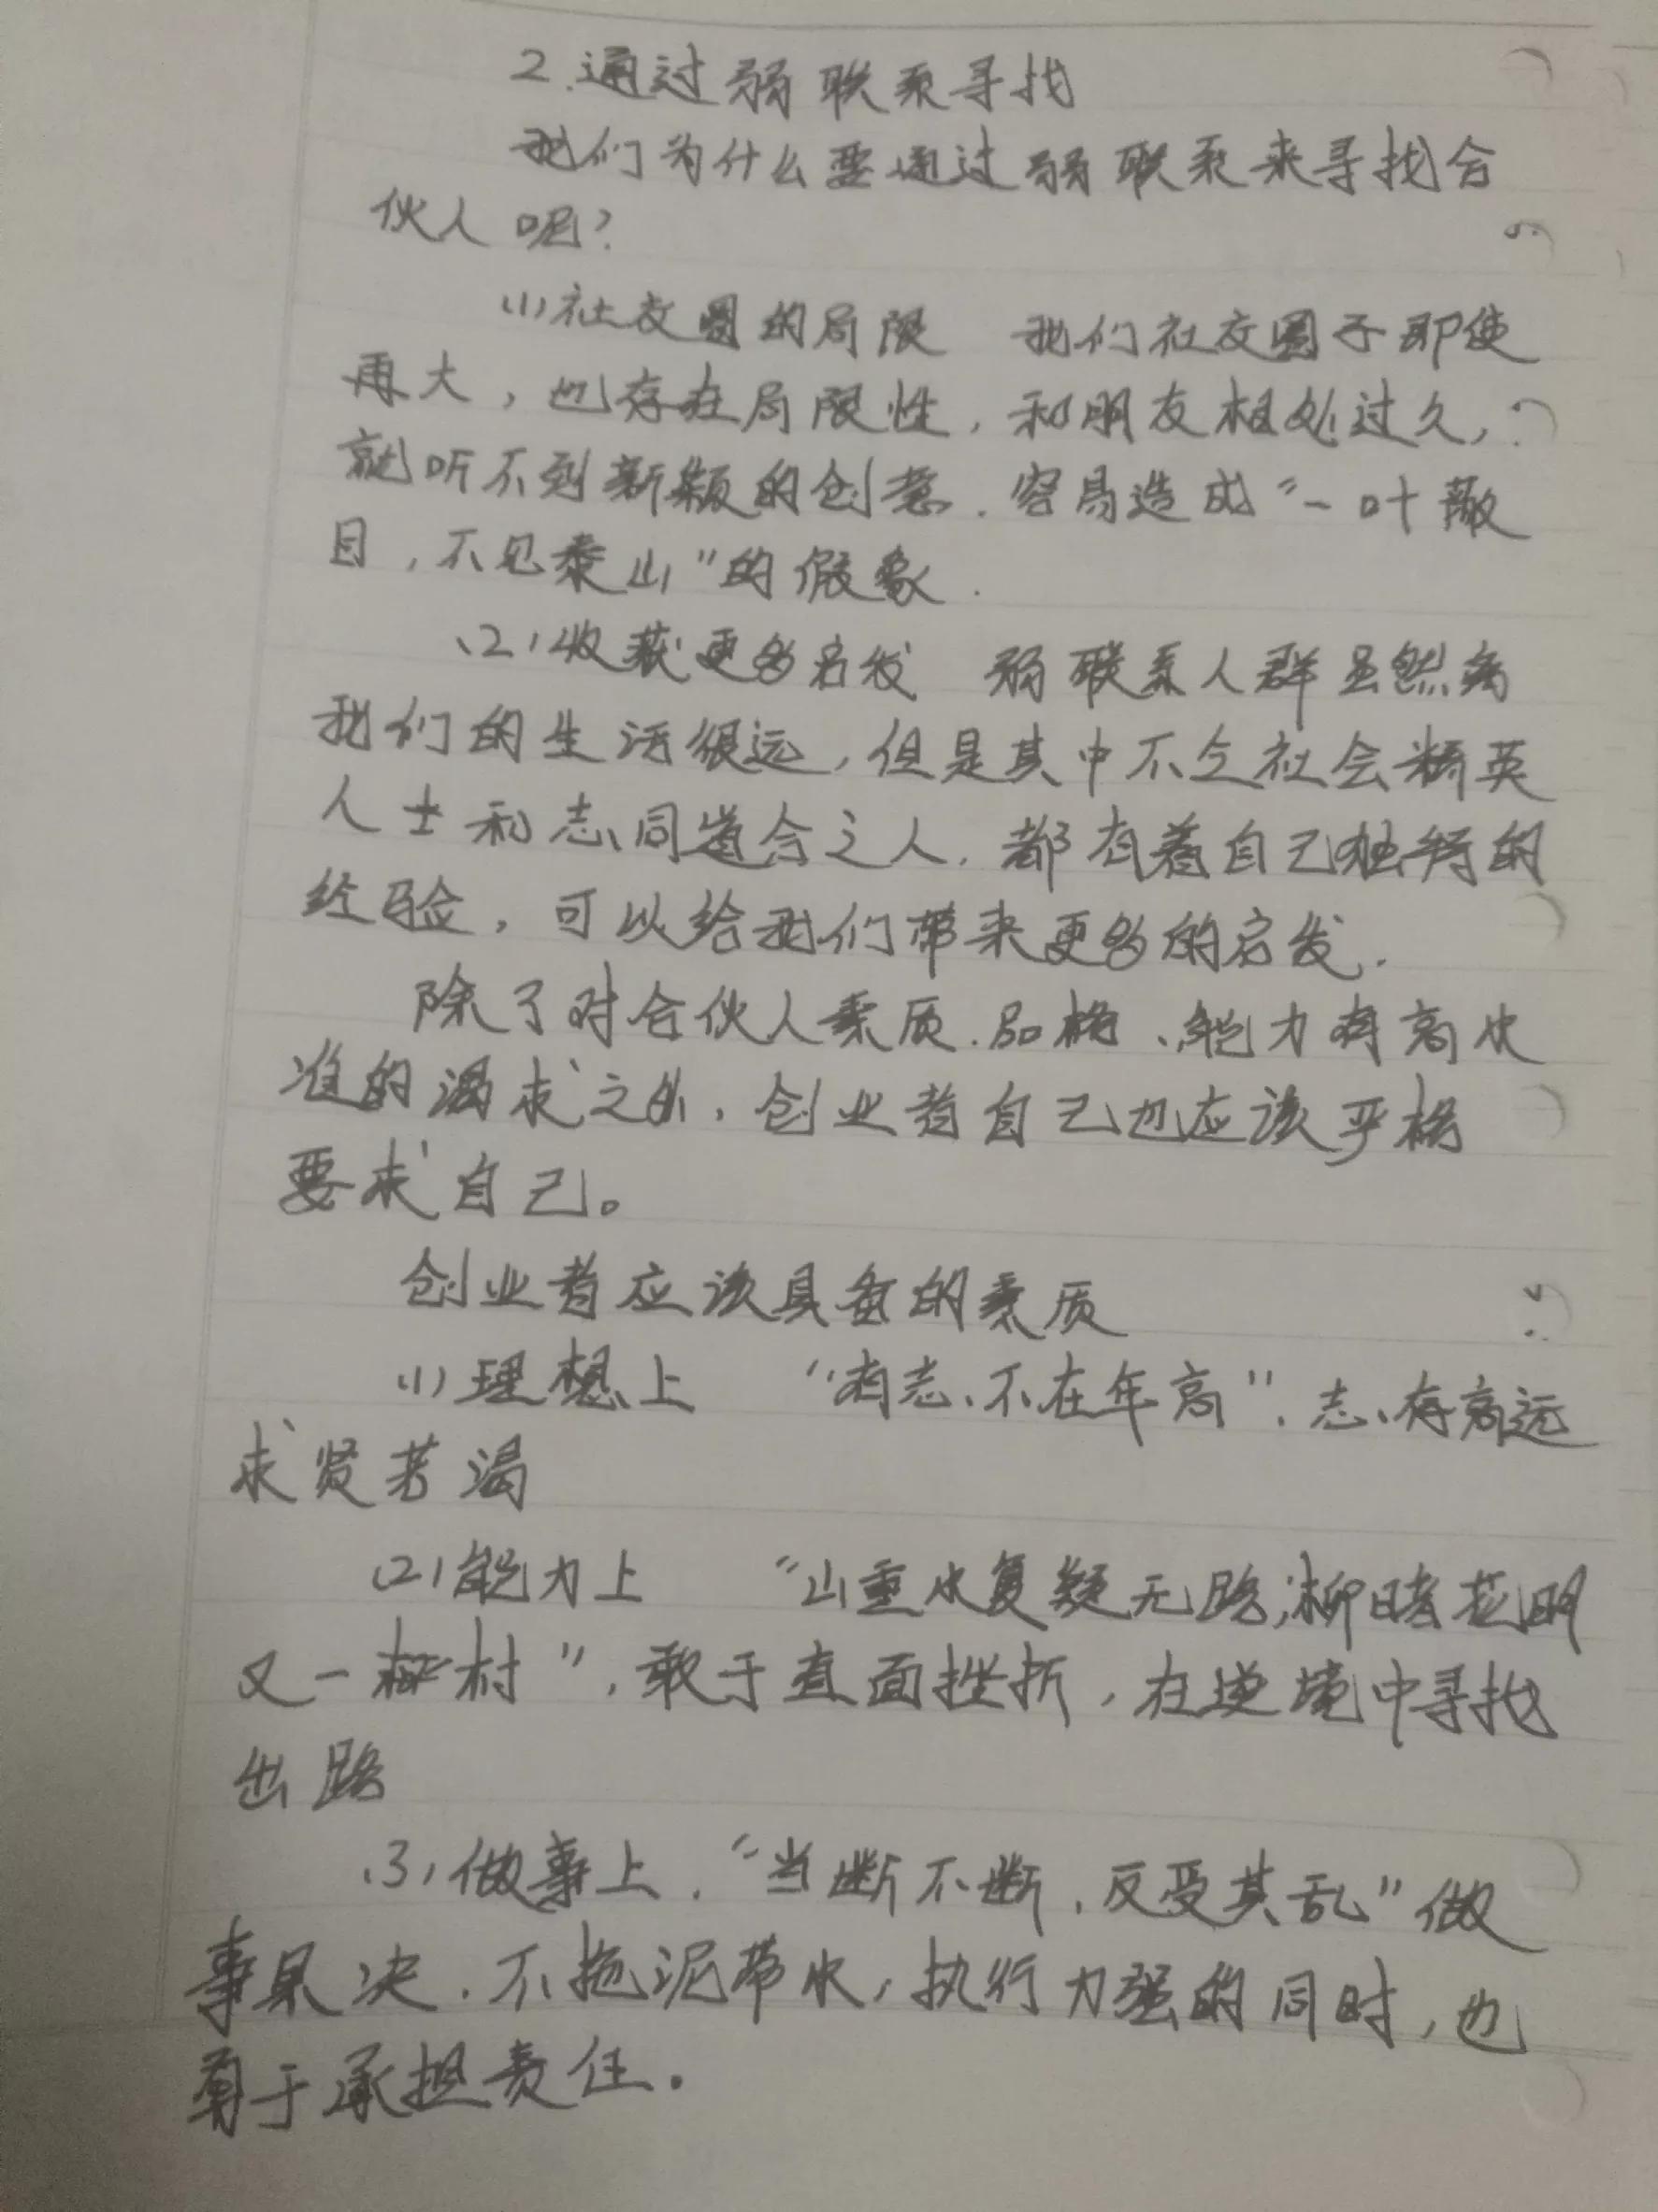 2.通过弱联系寻找
我们为什么要通过弱联系来寻找合
伙人呢?
(1)社交圈的局限 我们社交圈子即使
再大,也存在局限性,和朋友相处过久,
就听不到新颖的创意.容易造成"一叶蔽
目,不见泰山"的假象.
(2)收获更多启发 弱联系人群虽然离
我们的生活很远,但是其中不乏社会精英
人士和志同道合之人.都有着自己独特的
经验,可以给我们带来更多的启发.
除了对合伙人素质.品格、能力有高水
准的渴求之外,创业者自己也应该严格
要求自己。
创业者应该具备的素质
(1)理想上 "有志不在年高",志存高远
求贤若渴
(2)能力上 "山重水复疑无路,柳暗花明
又一村",敢于直面挫折,在逆境中寻找
出路
(3)做事上,"当断不断,反受其乱"做
事果决.不拖泥带水,执行力强的同时,也
勇于承担责任.